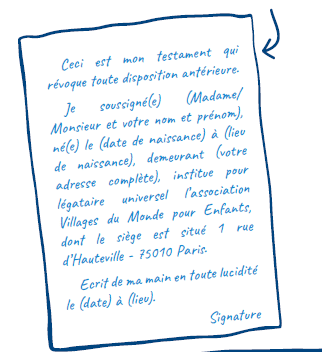 Ceci est mon testament qui
révoque toute disposition antérieure.
Je soussigné(e) (Madame/
Monsieur et votre nom et prénom),
né(e) le (date de naissance) à (lieu
de naissance), demeurant (votre
adresse complète), institue pour
légataire universel l'association
Villages du Monde pour Enfants,
dont le siège est situé 1 rue
d'Hauteville - 75010 Paris.
Ecrit de ma main en toute lucidité
le (date) à (lieu).
Signature